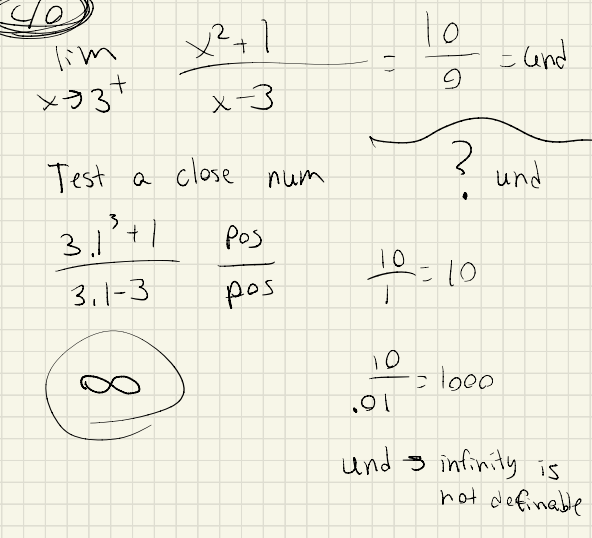 40
lim x→3⁺ x²+1 / x-3 = 10/0 = und
? und
Test a close num
3.1³+1 / 3.1-3 pos / pos
10/1 = 10
∞
10/.01 = 1000
und → infinity is
not definable